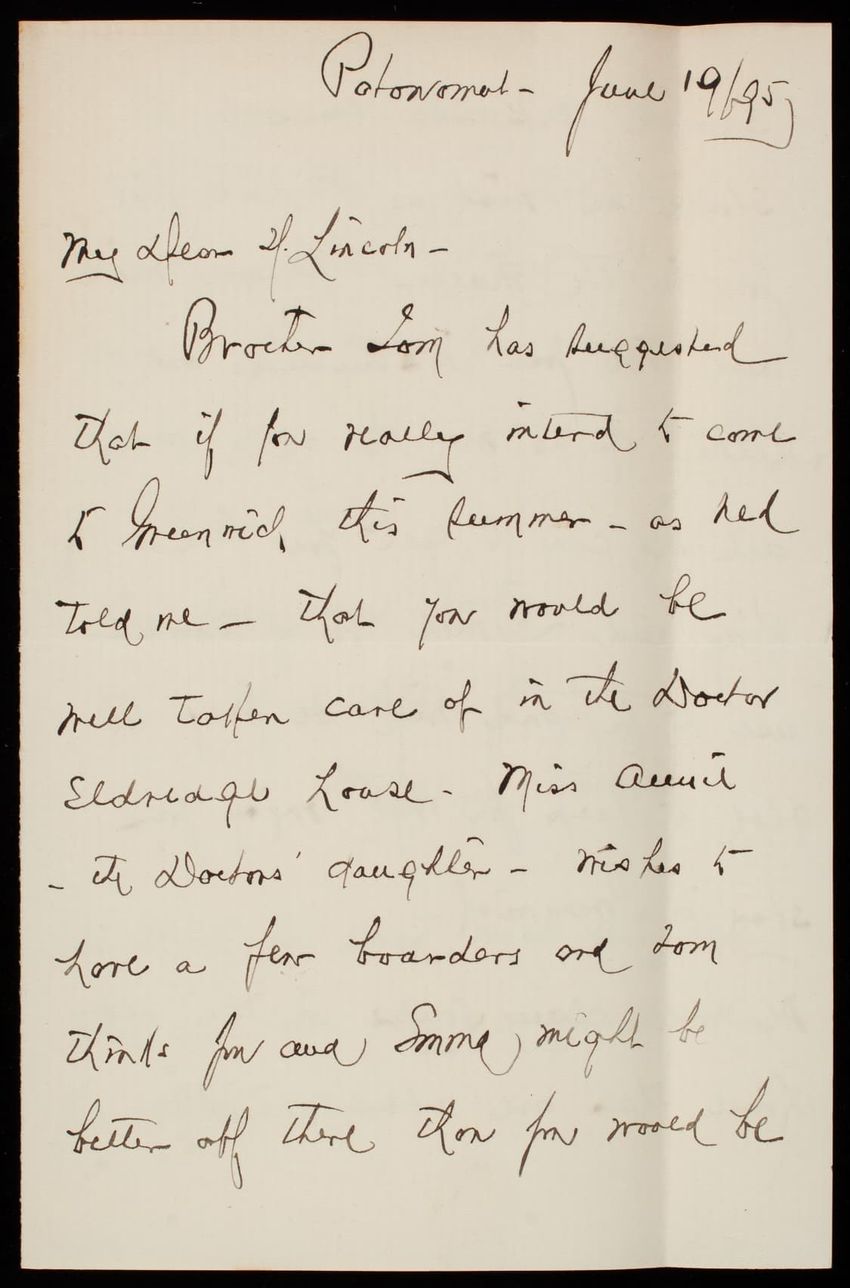 Potowomut - June 19/95
My Dear H. Lincoln -
Brother Tom has suggested
that if you really intend to come
to Greenwich this summer - as Ned
told me - that you would be
well taken care of in the Doctor
Eldredge house - Miss Annie
- the Doctors' daughter - wishes to
have a few boarders and Tom
thinks you and Emma might be
better off there than you would be